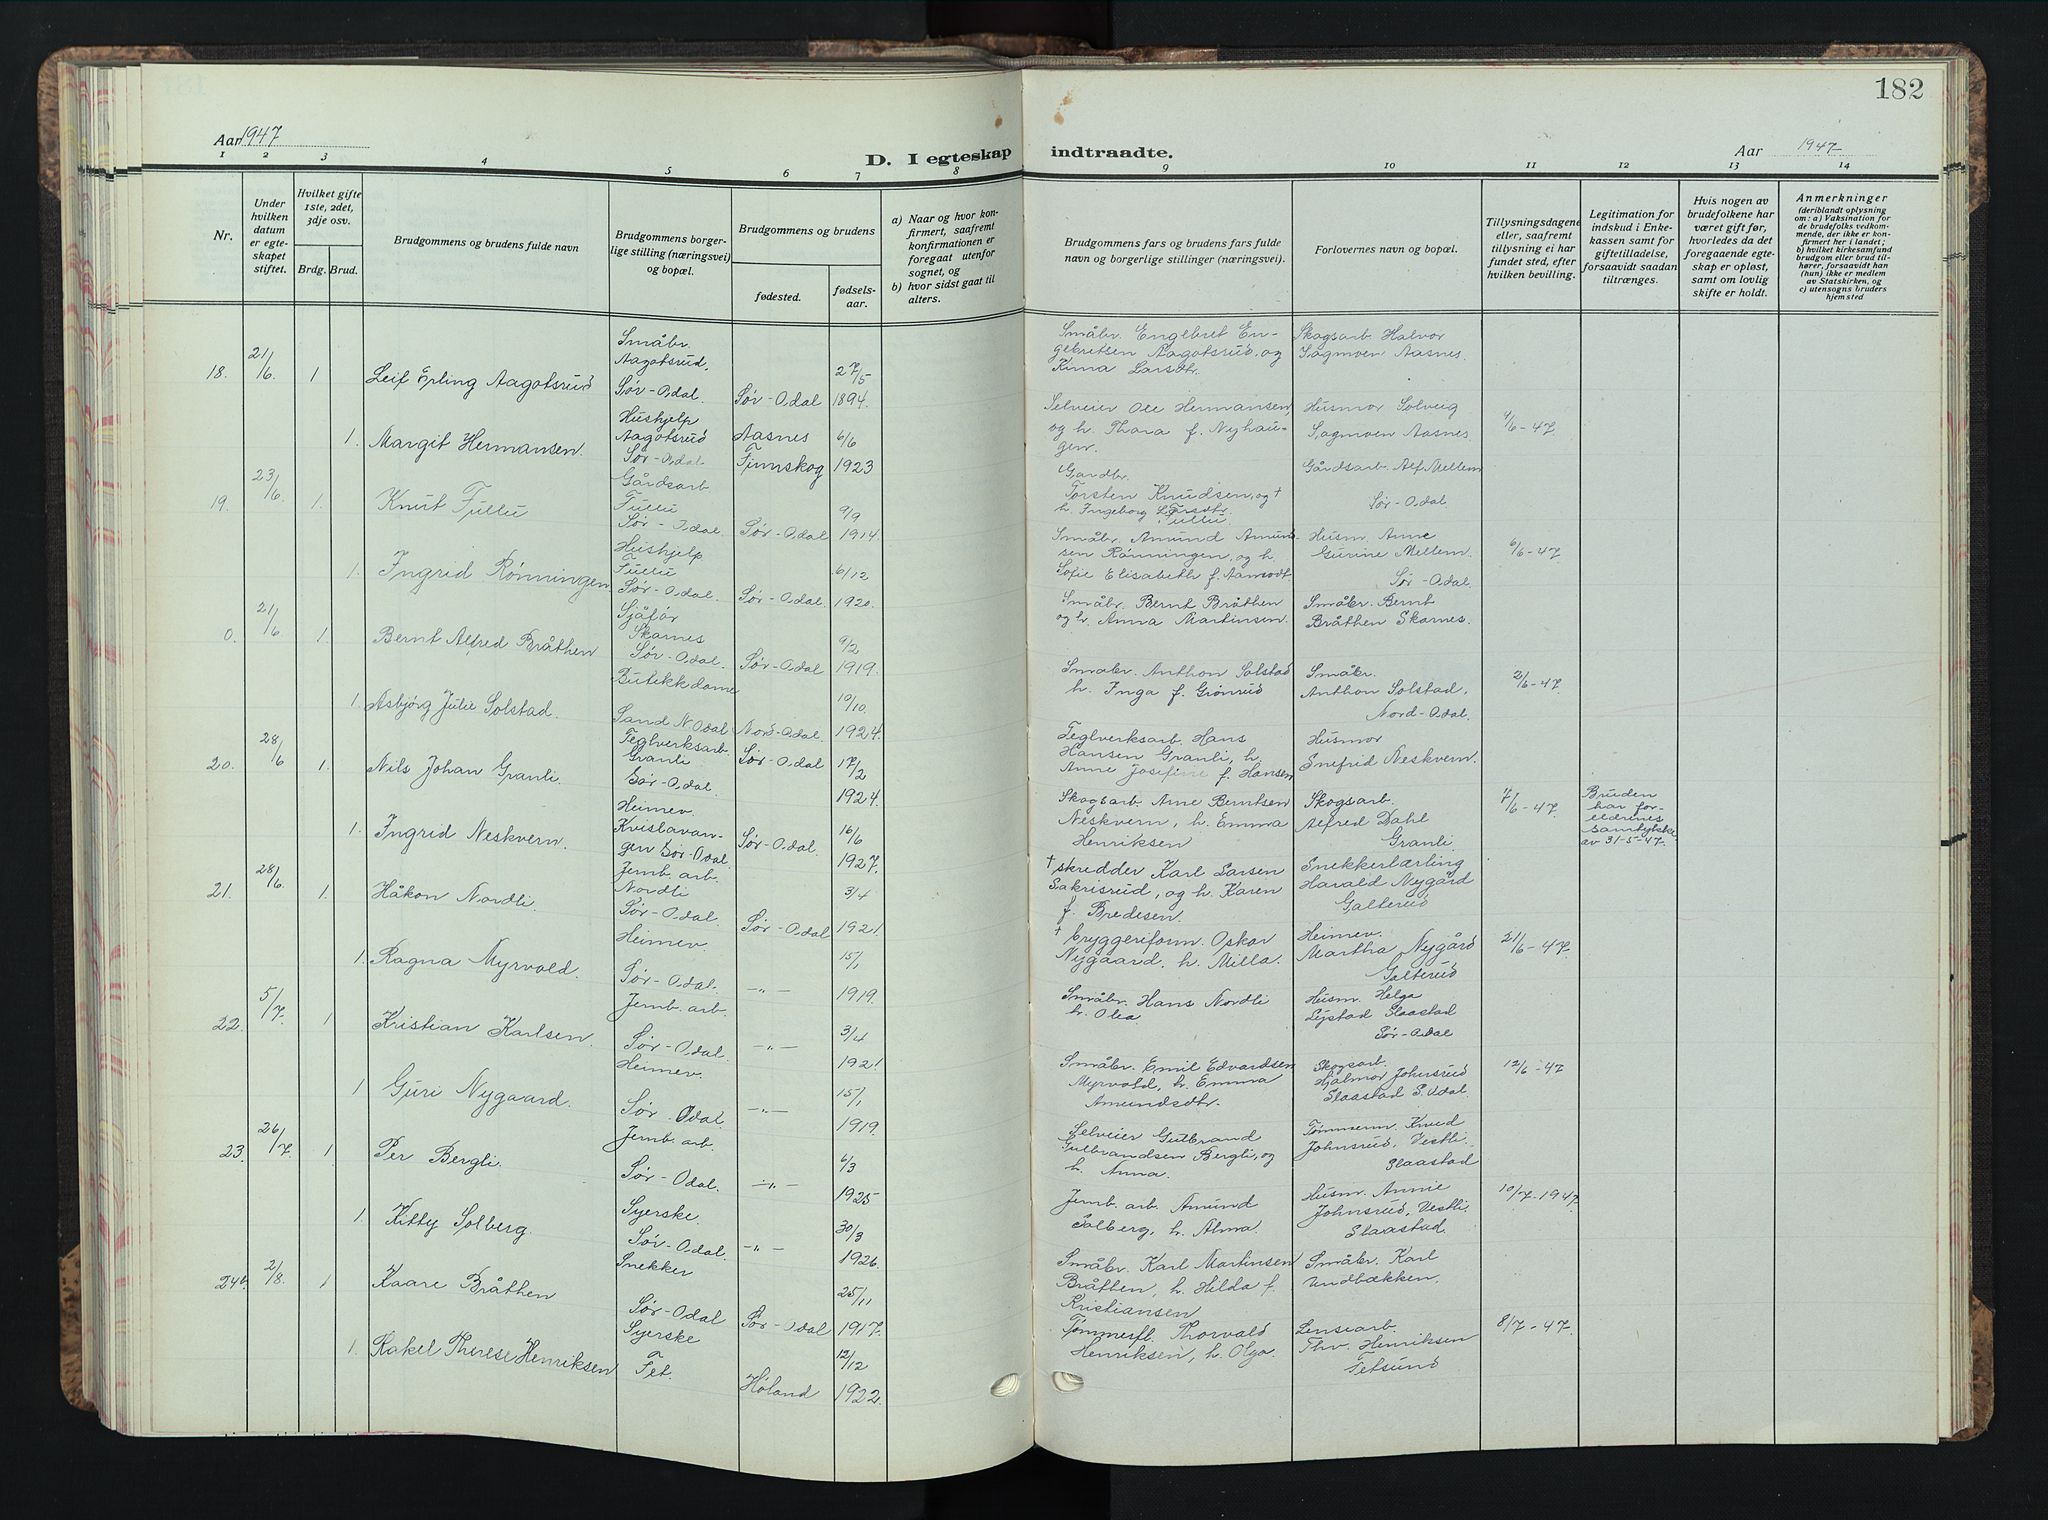 182
Aar 1947
D. I egteskap indtraadte.
Aar 1947
1 2 3 4 5 6 7 8 9 10 11 12 13 14
Nr.
Under hvilken datum er egteskapet stiftet.
Hvilket gifte 1ste, 2det, 3dje osv.
Brdg. Brud.
Brudgommens og brudens fulde navn
Brudgommens borgerlige stilling (næringsvei) og bopæl.
Brudgommens og brudens
fødested.
fødselsaar.
a) Naar og hvor konfirmert, saafremt konfirmationen er foregaat utenfor sognet, og
b) hvor sidst gaat til alters.
Brudgommens fars og brudens fars fulde navn og borgerlige stillinger (næringsvei).
Forlovernes navn og bopæl.
Tillysningsdagene eller, saafremt tillysning ei har fundet sted, efter hvilken bevilling.
Legitimation for indskud i Enkekassen samt for giftetilladelse, forsaavidt saadan tiltrænges.
Hvis nogen av brudefolkene har været gift før, hvorledes da det foregaaende egteskap er opløst, samt om lovlig skifte er holdt.
Anmerkninger (deriblandt oplysning om: a) Vaksination for de brudefolks vedkommende, der ikke er konfirmert her i landet; b) hvilket kirkesamfund brudgom eller brud tilhører, forsaavidt han (hun) ikke er medlem av Statskirken, og c) utensogns bruders hjemsted
18. 21/6 1 Leif Erling Aagotsrud
Småbr. Aagotsrud, Sør-Odal.
Sør-Odal
27/5 1894.
Småbr. Engebret Engebretsen Aagotsrud, og Kima Larsdtr.
Skogsarb. Halvor Sagmoen Aasnes.
1. Margit Hermansen.
Hushjelp Aagotsrud Sør-Odal
Aasnes Finnskog
6/6 1923
Selveier Ole Hermansen, og h. Thara f. Nyhaugen.
Husmor Solveig Sagmoen Aasnes.
4/6-47.
19. 23/6. 1. Knut Tullu
Gårdsarb Tullu Sør-Odal
Sør-Odal
9/9 1914.
Gardbr. Torsten Knudsen, og † h. Ingeborg Larsdtr. Tullu.
Gårdsarb. Alf Mellem Sør-Odal.
1. Ingrid Rønningen
Hushjelp Tullu Sør-Odal.
Sør-Odal.
6/12 1920.
Småbr. Amund Amundsen Rønningen, og h Sofie Elisabeth f. Aamodt.
Husm. Anne Gurine Mellem. Sør-Odal.
6/6-47.
0. 21/6 1. Bernt Alfred Bråthen
Sjåfør Skarnes Sør-Odal.
Sør-Odal
9/2 1919.
Småbr. Bernt Bråthen og h. Anna Martinsen.
Småbr. Bernt Bråthen Skarnes.
1. Asbjørg Julie Solstad.
Butekkdame Sand N Odal
Nord-Odal.
10/10. 1924.
Småbr. Anthon Solstad h. Inga f. Grønrud
Småbr. Anthon Solstad, Nord-Odal.
2/6-47.
20. 28/6 1. Nils Johan Granli.
Teglverksarb. Granli Sør-Odal.
Sør-Odal
17/2 1924.
Teglverksarb. Hans Hansen Granli, h. Anne Josefine f. Hansen
Husmor Snefrid Neskvern.
1. Ingrid Neskvern.
Heimev. Kvislavangen Sør-Odal.
Sør-Odal.
16/6 1927.
Skogsarb. Arne Berntsen Neskvern, h. Emma Henriksen
Skogsarb. Alfred Dahl Granli.
7/6-47.
Bruden har foreldrenes samtykke av 31-5-47.
21. 28/6. 1. Håkon Nordli.
Jernb. arb. Nordli Sør-Odal.
Sør-Odal
3/4 1921.
† skredder Karl Larsen Sakrisrud, og h. Karen f. Bredesen.
Snekkerlærling Harald Nygård Galterud
1. Ragna Myrvold.
Heimev. Sør-Odal.
-"-
15/1 1919.
† bryggeriform. Oskar Nygaard, h. Milla.
Heimev. Martha Nygård Galterud
21/6-47
22. 5/7. 1 Kristian Karlsen.
Jernb. arb. Sør-Odal.
-"-
3/4 1921
Småbr. Hans Nordli h. Olea.
Husm. Helga Lystad Slaastad Sør-Odal
1 Guri Nygaard.
Heimev. Sør-Odal.
-"-
15/1 1919.
Småbr. Emil Edvardsen Myrvold, h. Emma Amundsdtr.
Skogsarb. Hjalmar Johnsrud Slaastad S. Odal.
12/6-47
23. 26/7. 1 Per Bergli.
Jernb. arb. Sør-Odal.
-"-
6/3 1925
Selveier Gulbrand Gulbrandsen Bergli, og h. Anna.
Tømmerm. Knud Johnsrud, Vestli. Slaastad
1. Kitty Solberg.
Syerske. Sør-Odal.
-"-
30/3 1926.
Jernb. arb. Amund Solberg, h. Alma.
Husm. Annie Johnsrud, Vestli. Slaastad.
10/7-1947.
24b. 2/8. 1 Kaare Bråthen
Snekker Sør-Odal
Sør-Odal
25/11 1917.
Småbr. Karl Martinsen Bråthen, h. Hilda f. Kristiansen
Småbr. Karl Undbækken.
1. Rakel Therese Henriksen
Syerske Fet.
Høland
12/12 1922.
Tømmerfl. Thorvald Henriksen, h. Olga.
Lensearb. Thv. Henriksen Fetsund
8/7-47.